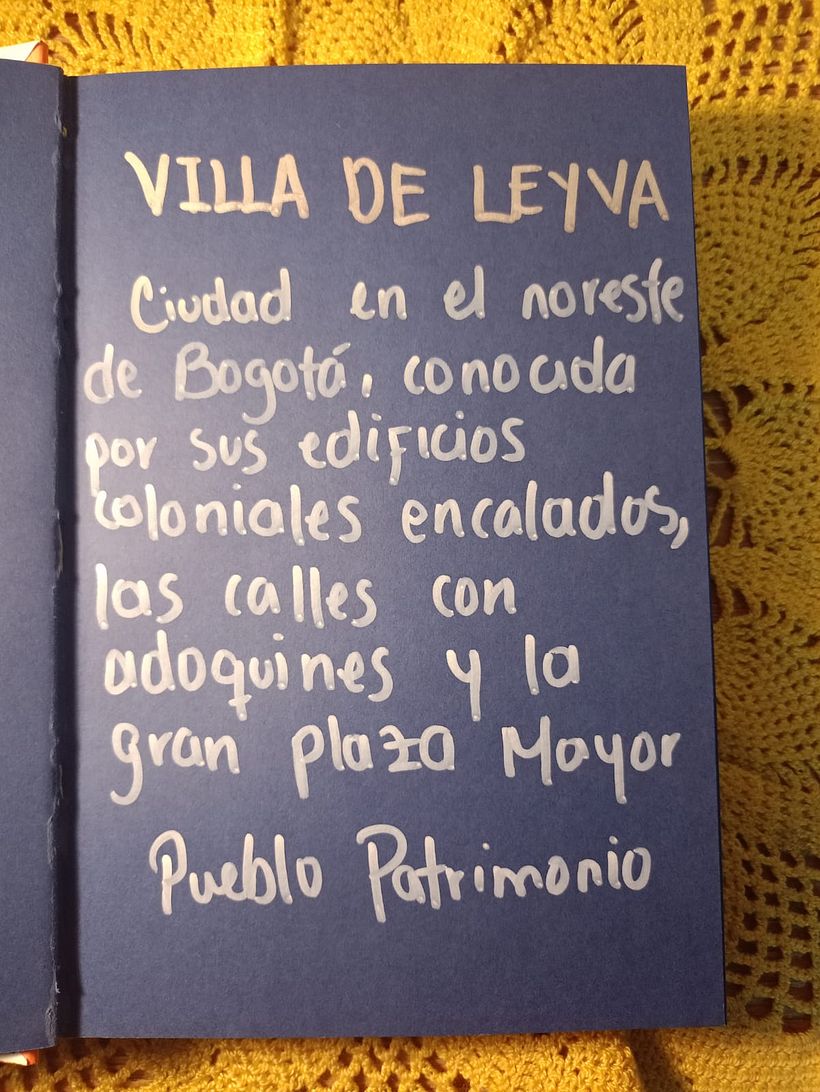 VILLA DE LEYVA
Ciudad en el noreste
de Bogotá, conocida
por sus edificios
coloniales encalados,
las calles con
adoquines y la
gran plaza Mayor
Pueblo Patrimonio